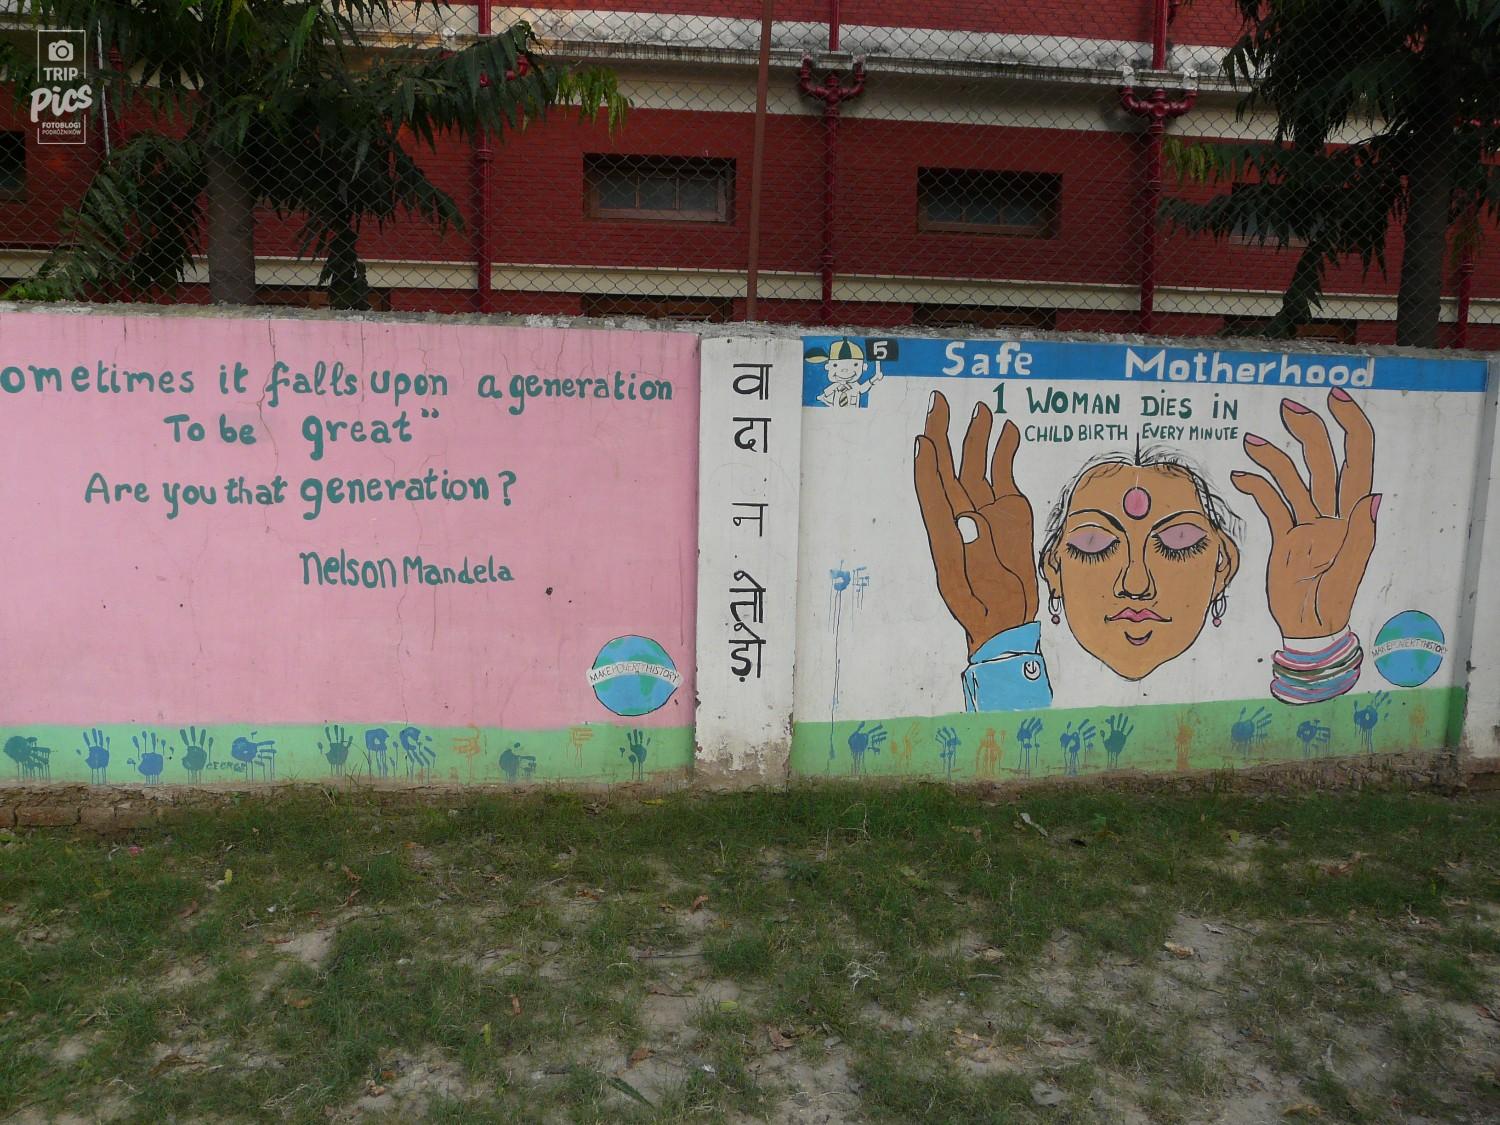 TRIP
pics
FOTOBLOGI
PODRÓŻNIKÓW
ometimes it falls upon a generation
To be great”
Are you that generation?
Nelson Mandela
MAKE POVERTY HISTORY
GEORGE
वादा न तोड़ो
5
Safe Motherhood
1 WOMAN DIES IN
CHILD BIRTH EVERY MINUTE
MAKE POVERTY HISTORY